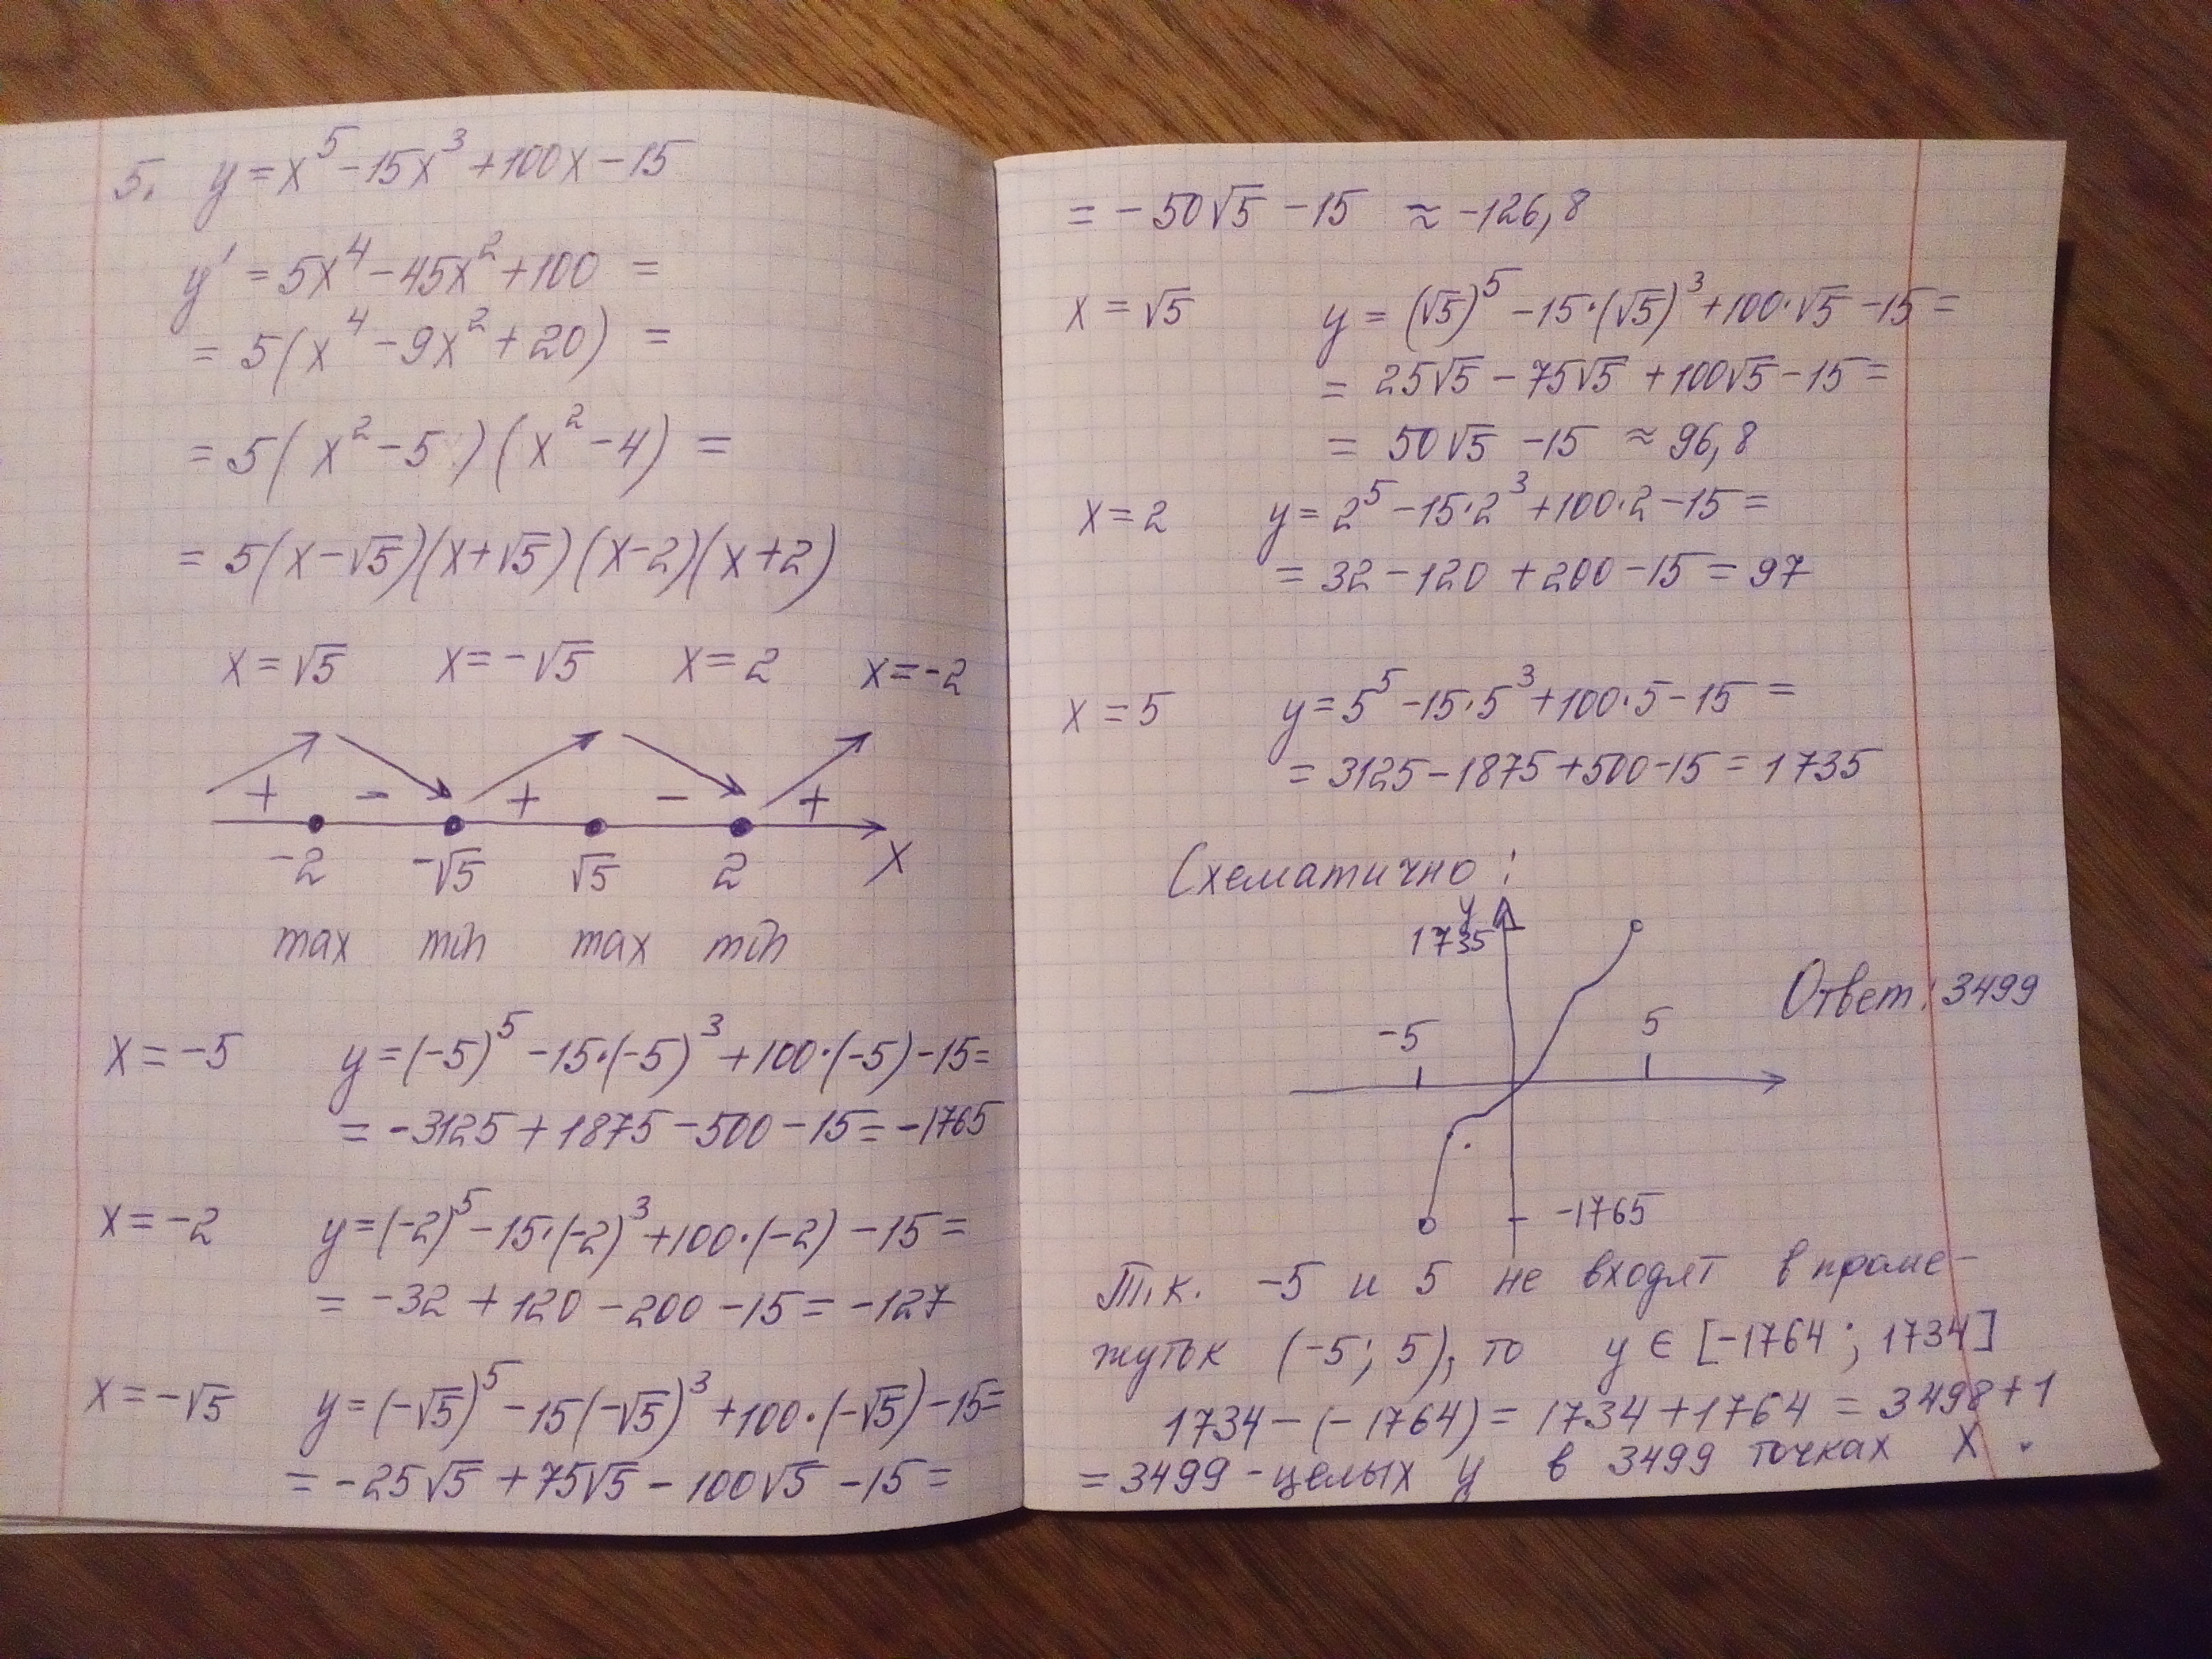 5. y = x⁵ - 15x³ + 100x - 15
y' = 5x⁴ - 45x² + 100 =
= 5(x⁴ - 9x² + 20) =
= 5(x² - 5)(x² - 4) =
= 5(x - √5)(x + √5)(x - 2)(x + 2)
x = √5 x = -√5 x = 2 x = -2
+ - + - +
-2 -√5 √5 2 x
max min max min
x = -5 y = (-5)⁵ - 15·(-5)³ + 100·(-5) - 15 =
= -3125 + 1875 - 500 - 15 = -1765
x = -2 y = (-2)⁵ - 15·(-2)³ + 100·(-2) - 15 =
= -32 + 120 - 200 - 15 = -127
x = -√5 y = (-√5)⁵ - 15(-√5)³ + 100·(-√5) - 15 =
= -25√5 + 75√5 - 100√5 - 15 =
= -50√5 - 15 ≈ -126,8
x = √5 y = (√5)⁵ - 15·(√5)³ + 100·√5 - 15 =
= 25√5 - 75√5 + 100√5 - 15 =
= 50√5 - 15 ≈ 96,8
x = 2 y = 2⁵ - 15·2³ + 100·2 - 15 =
= 32 - 120 + 200 - 15 = 97
x = 5 y = 5⁵ - 15·5³ + 100·5 - 15 =
= 3125 - 1875 + 500 - 15 = 1735
Схематично:
y
1735
Ответ: 3499
-5 5
-1765
Т.к. -5 и 5 не входят в проме-
жуток (-5; 5), то y ∈ [-1764; 1734]
1734 - (-1764) = 1734 + 1764 = 3498 + 1
= 3499 - целых y в 3499 точках x.